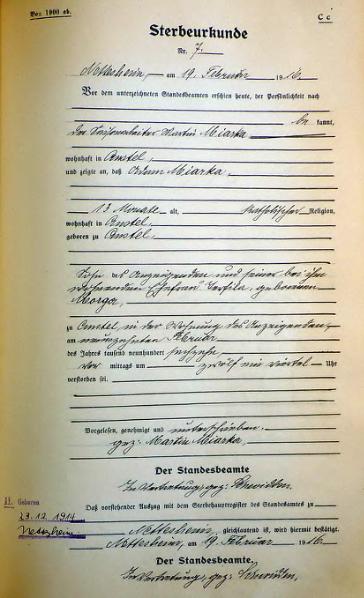 Vor 1900 ab.
C c
Sterbeurkunde
Nr. 7.
Nettersheim, am 19. Februar 1916.
Vor dem unterzeichneten Standesbeamten erschien heute, der Persönlichkeit nach
be kannt,
der Saisonarbeiter Martin Miarka
wohnhaft in
und zeigte an, daß Adam Miarka,
13 Monate alt, katholischer Religion,
wohnhaft in
geboren zu
Sohn des Anzeigenden und seiner bei ihm
wohnenden Ehefrau geborenen
Morga,
zu in der Wohnung des Anzeigenden,
am neunzehnten Februar
des Jahres tausend neunhundert sechzehn
vor mittags um zwölf ein viertel Uhr
verstorben sei.
Vorgelesen, genehmigt und unterschrieben.
gez. Martin Miarka.
Der Standesbeamte
In Vertretung, gez.
Daß vorstehender Auszug mit dem Sterbehauptregister des Standesamtes zu
Nettersheim, gleichlautend ist, wird hiermit bestätigt.
Nettersheim, am 19. Februar 1916.
Der Standesbeamte.
In Vertretung, gez.
Geboren
23.12.1914
Nettersheim